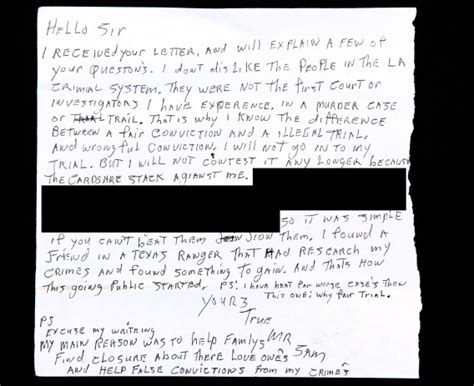 Hello Sir
I received your letter, and will explain a few of
your Questons. I dont disLike the People in the LA
Crimal System. They were not the first Court or
investigators I have experence. in a murder case
or Trail. That is why I know the difference
Between a fair conviction and a illegal Trial.
And wrongful conviction. I will not go in to my
Trial. But I will not contest it any longer because
The Cardsare stack against me.
so it was simple
if you can't beat them Jion them. I found a
friend in a Texas Ranger that had research my
crimes and found something to gain. and thats how
this going public started. PS! I have beat far worse case's then
This one! why fair Trial.
Yours
True
PS
Excuse my writing
My main Reason was to help Familys MR
Find closure about there Love one's Sam
And help false convictions from my crime's